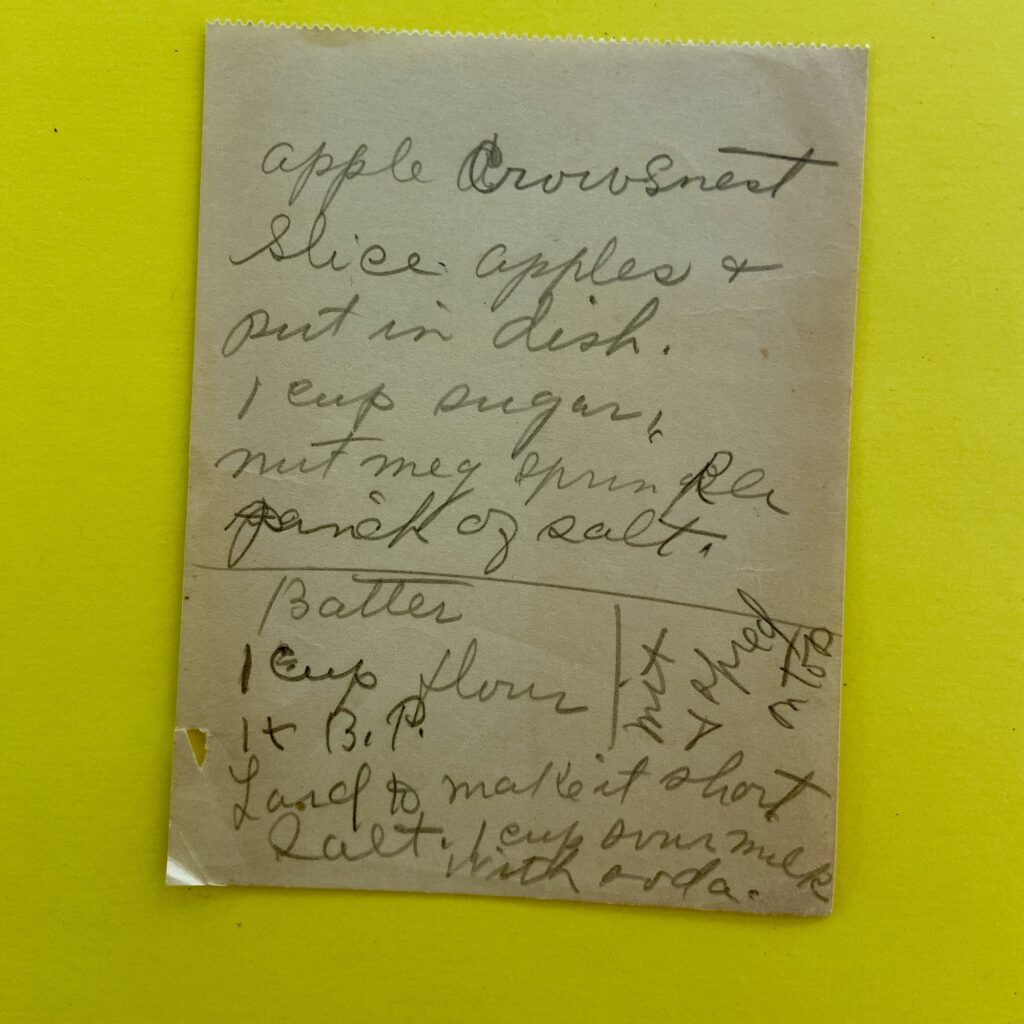 apple Crowsnest
Slice apples &
put in dish.
1 cup sugar,
nut meg sprinkle
pinch of salt.
Batter
1 cup flour
1 t B.P.
Lard to make it short
Salt. 1 cup sour milk
with soda.
mix
& spred
on top